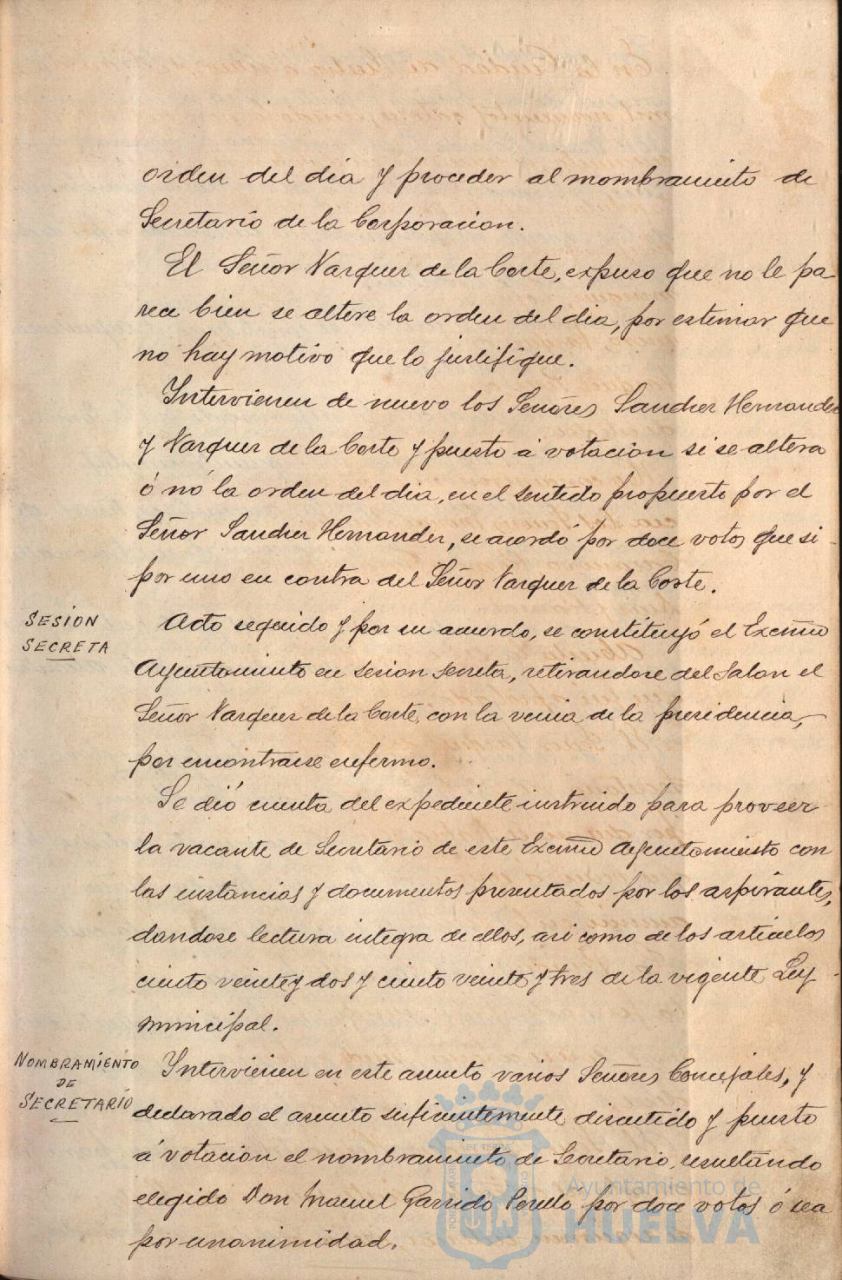 orden del dia y proceder al nombramiento de
Secretario de la Corporacion.
El Señor Vazquez de la Corte, expuso que no le pa-
rece bien se altere la orden del dia, por estimar que
no hay motivo que lo justifique.
Intervienen de nuevo los Señores Sanchez Hernandez
y Vazquez de la Corte y puesto á votacion si se altera
ó nó la orden del dia, en el sentido propuesto por el
Señor Sanchez Hernandez, se acordó por doce votos que si
por uno en contra del Señor Vazquez de la Corte.
SESION
SECRETA
Acto seguido y por su acuerdo, se constituyó el Excmo
Ayuntamiento en sesion secreta, retirandose del Salon el
Señor Vazquez de la Corte, con la venia de la presidencia,
por encontrarse enfermo.
Se dió cuenta del expediente instruido para proveer
la vacante de Secretario de este Excmo Ayuntamiento con
las instancias y documentos presentados por los aspirantes,
dandose lectura integra de ellos, asi como de los articulos
ciento veinte y dos y ciento veinte y tres de la vigente Ley
municipal.
NOMBRAMIENTO
DE
SECRETARIO
Intervienen en este asunto varios Señores Concejales, y
declarado el asunto suficientemente discutido y puesto
á votacion el nombramiento de Secretario, resultando
elegido Don Manuel Garrido Perelló por doce votos ó sea
por unanimidad.
Ayuntamiento de
HUELVA